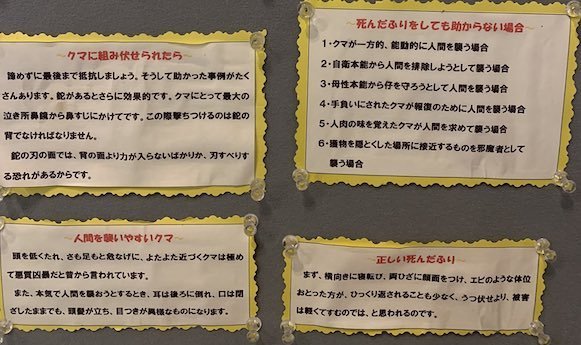 ~クマに組み伏せられたら~
諦めずに最後まで抵抗しましょう。そうして助かった事例がたく
さんあります。鉈があるとさらに効果的です。クマにとって最大の
泣き所鼻鏡から鼻すじにかけてです。この際撃ちつけるのは鉈の
背でなければなりません。
鉈の刃の面では、背の面より力が入らないばかりか、刃すべりす
る恐れがあるからです。
~死んだふりをしても助からない場合~
1・クマが一方的、能動的に人間を襲う場合
2・自衛本能から人間を排除しようとして襲う場合
3・母性本能から仔を守ろうとして人間を襲う場合
4・手負いにされたクマが報復のために人間を襲う場合
5・人肉の味を覚えたクマが人間を求めて襲う場合
6・獲物を隠とくした場所に接近するものを邪魔者として
襲う場合
~人間を襲いやすいクマ~
頭を低くたれ、さも足もと危なげに、よたよた近づくクマは極め
て悪質凶暴だと昔から言われています。
また、本気で人間を襲おうとするとき、耳は後ろに倒れ、口は閉
ざしたままでも、頭髪が立ち、目つきが異様なものになります。
~正しい死んだふり~
まず、横向きに寝転び、両ひざに顔面をつけ、エビのような体位
おとった方が、ひっくり返されることも少なく、うつ伏せより、被害
は軽くてすむのでは、と思われるのです。